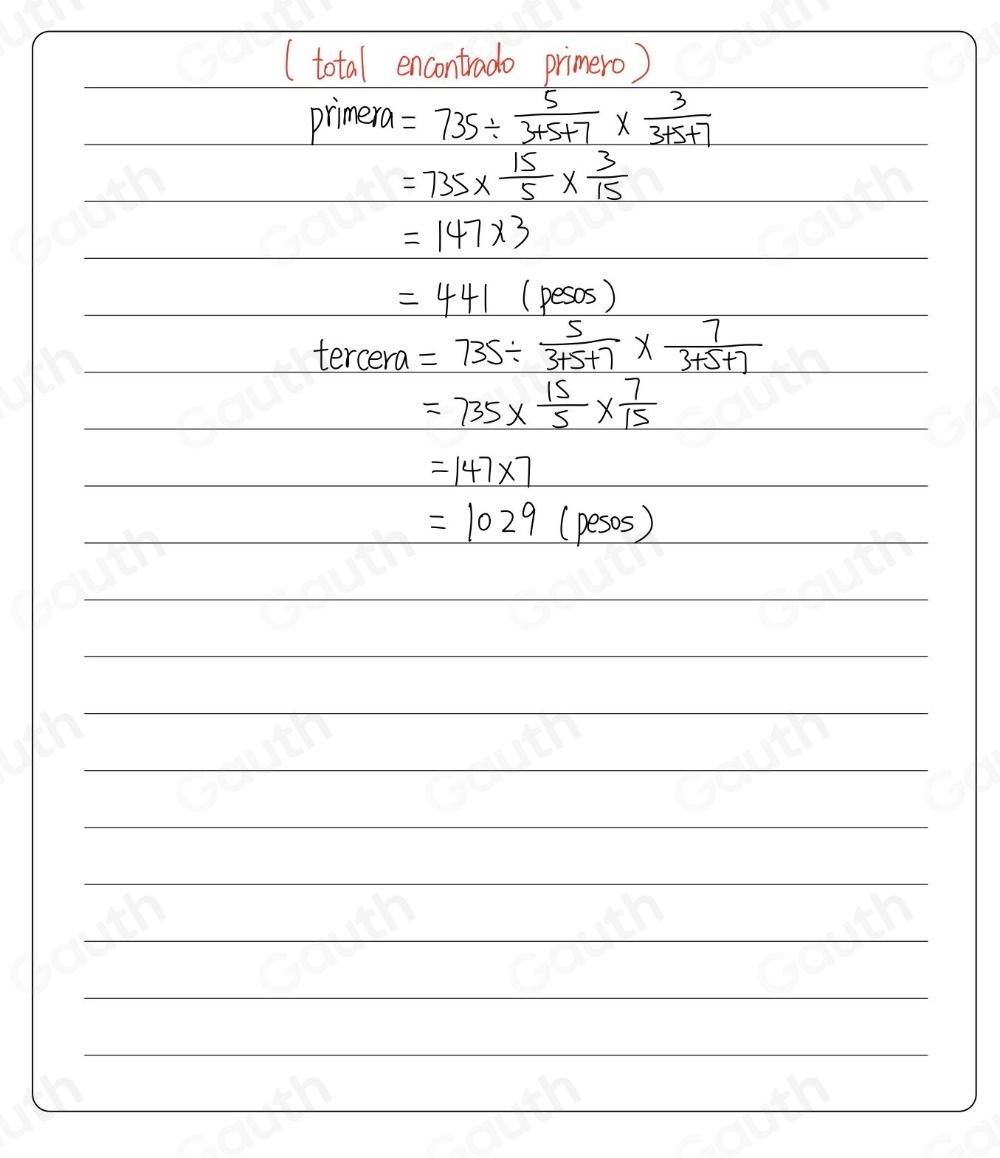 ( total encontrado primero )
primera = 735 ÷ 5/(3+5+7) × 3/(3+5+7)
= 735 × 15/5 × 3/15
= 147 × 3
= 441 (pesos)
tercera = 735 ÷ 5/(3+5+7) × 7/(3+5+7)
= 735 × 15/5 × 7/15
= 147 × 7
= 1029 (pesos)
Gauth